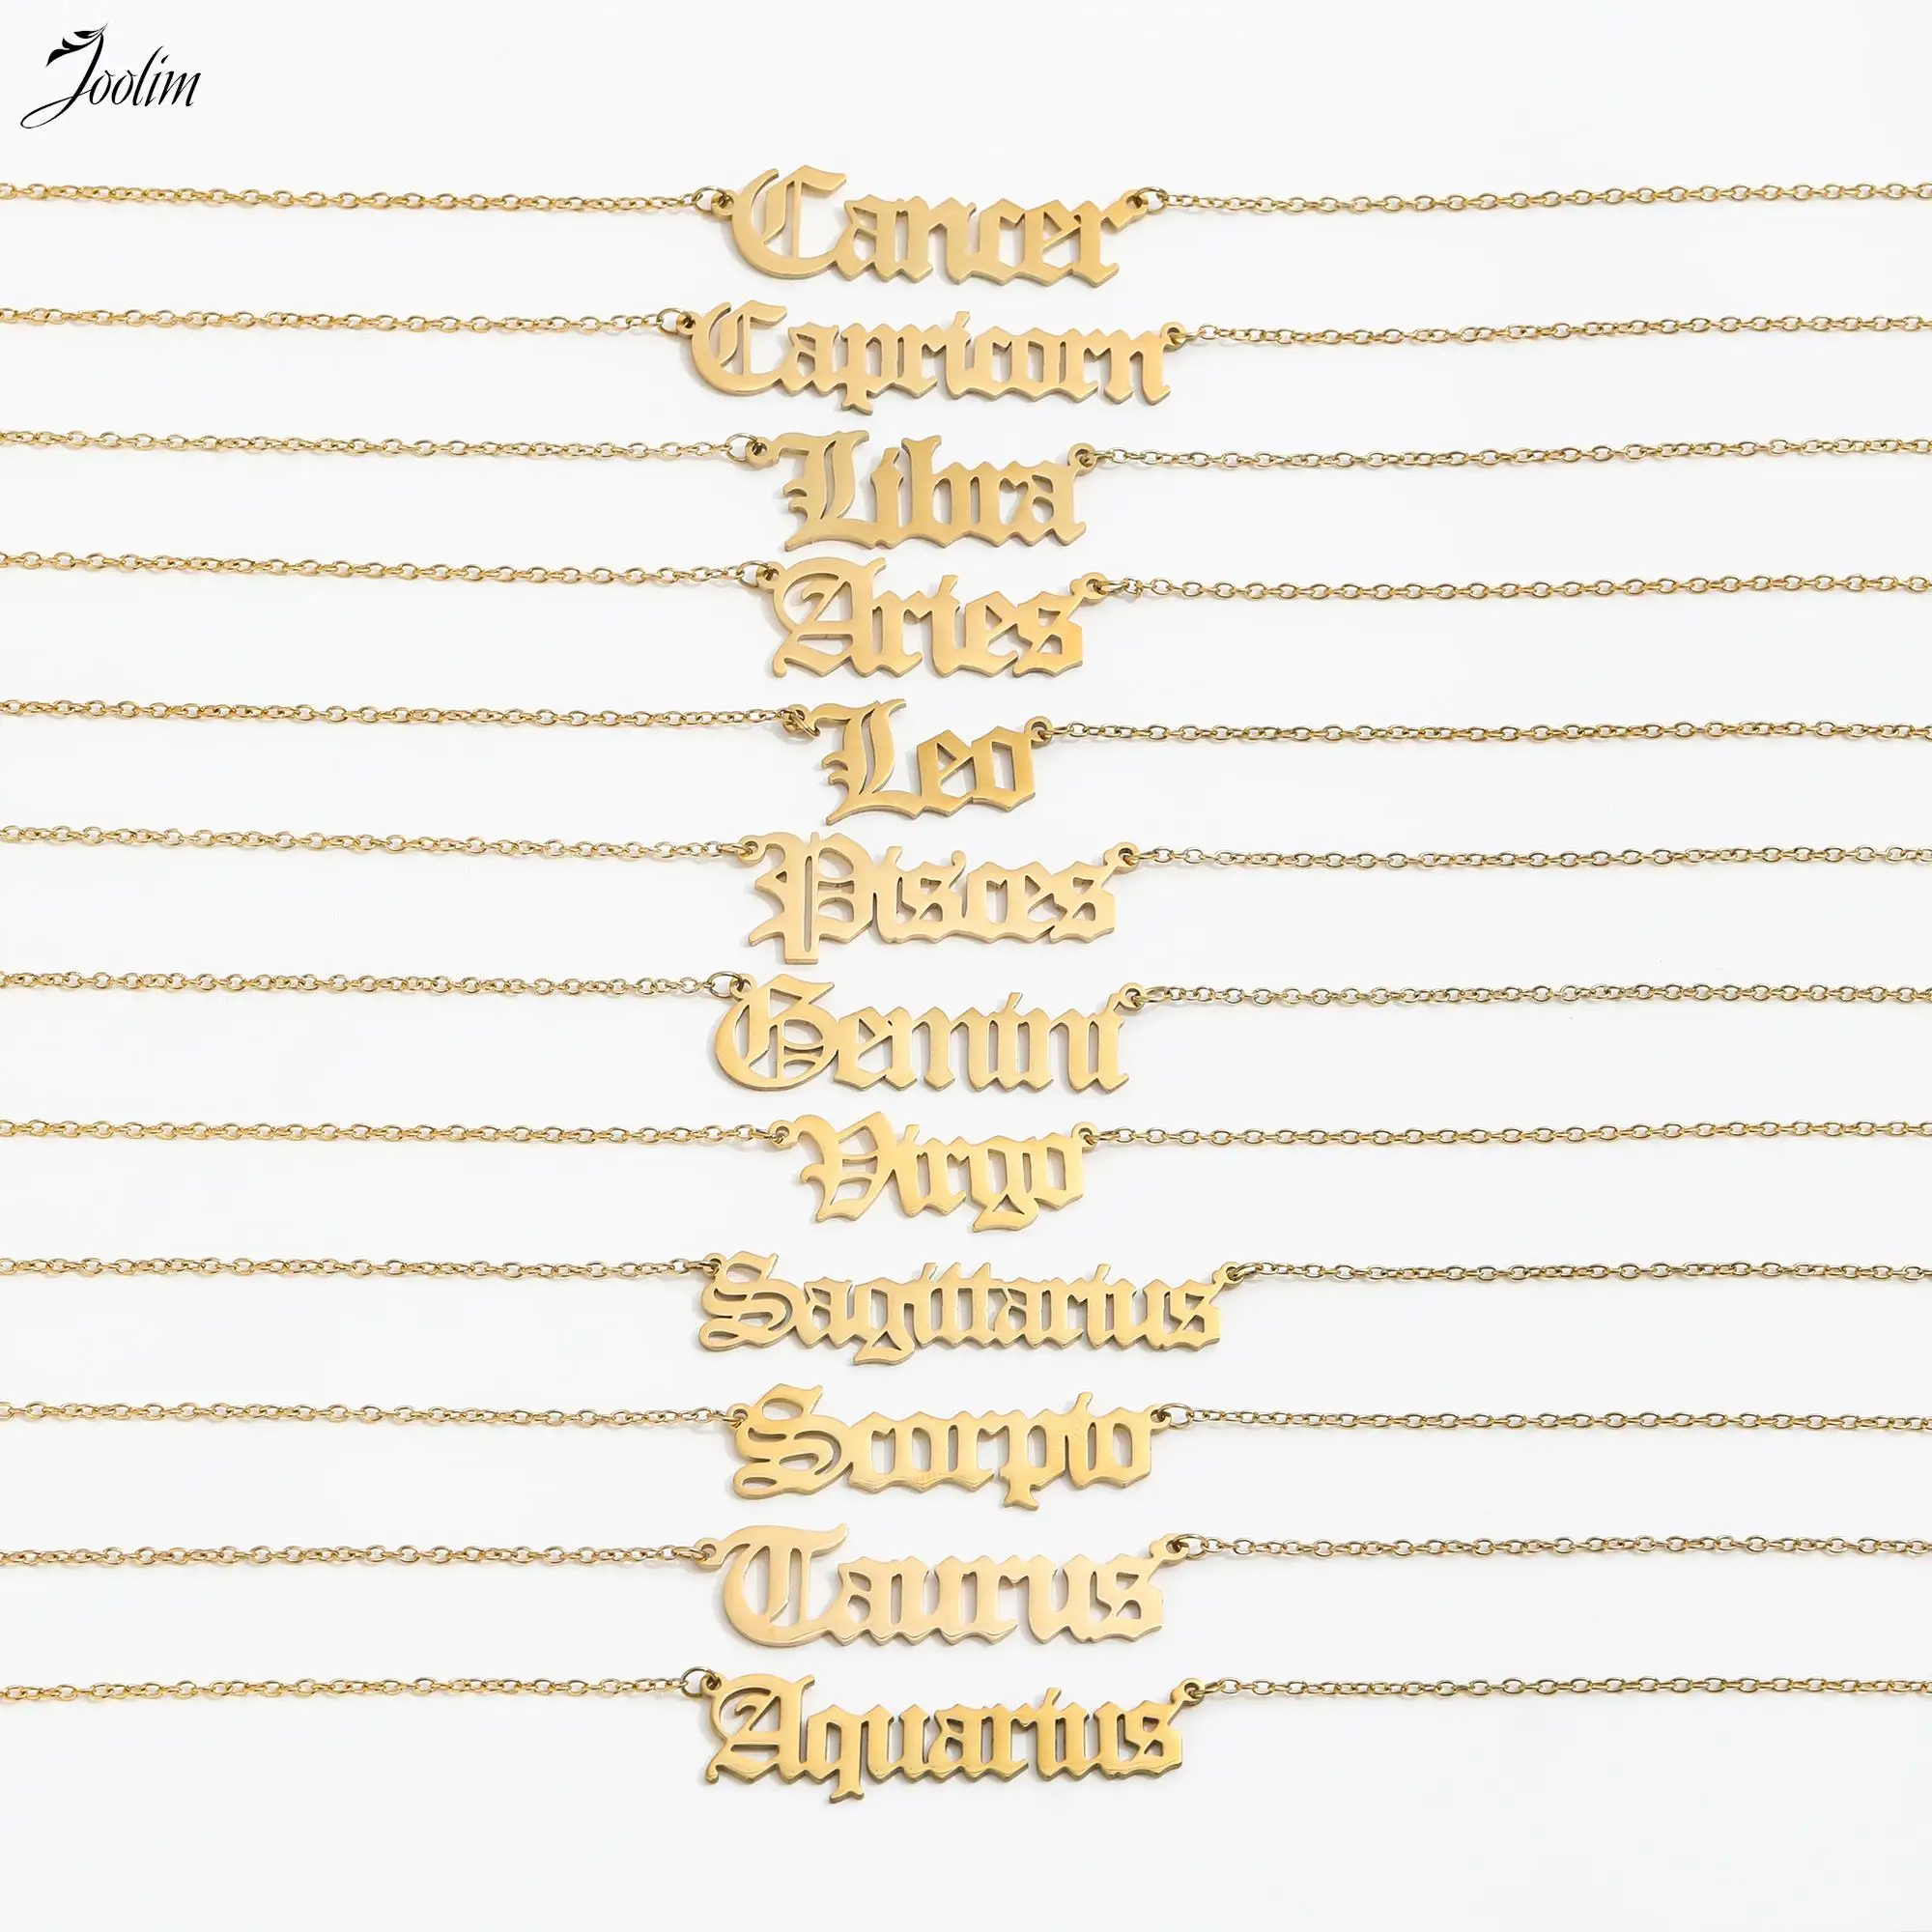 Joolim
Cancer
Capricorn
Libra
Aries
Leo
Pisces
Gemini
Virgo
Sagittarius
Scorpio
Taurus
Aquarius